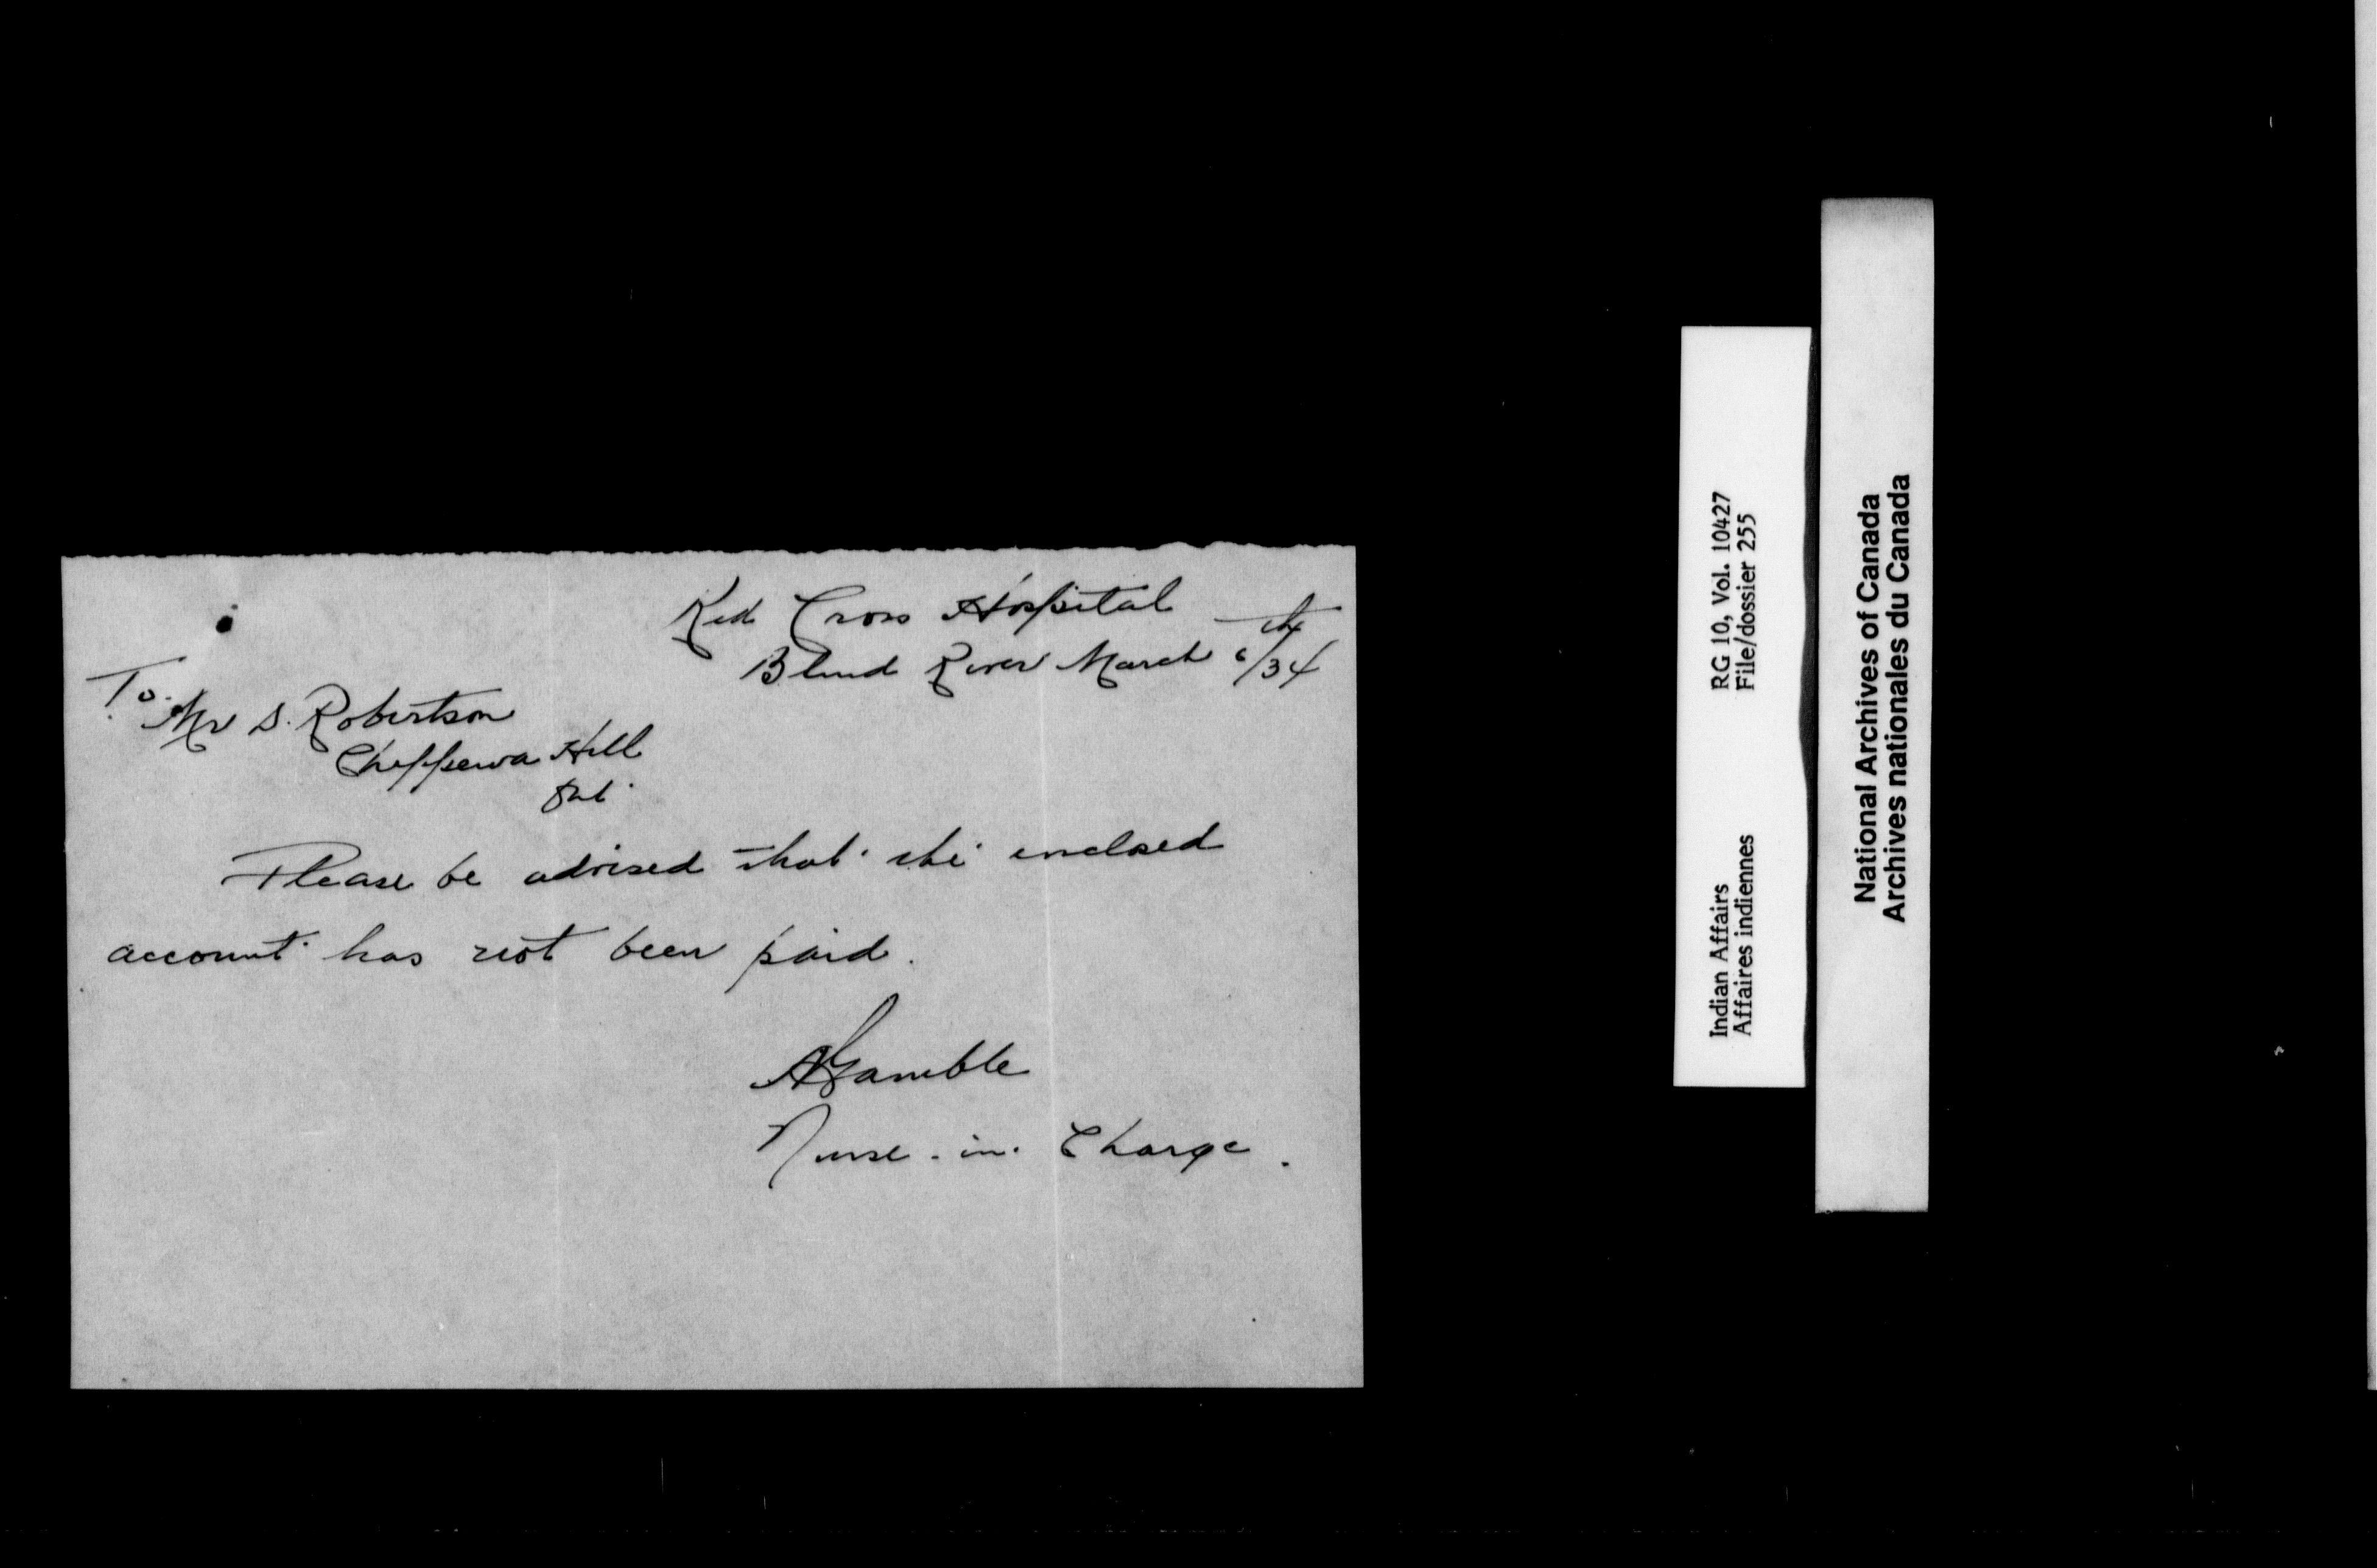 Red Cross Hospital
Blind River March 6th/34
To.
Mr S. Robertson
Cheppewa Hill
Ont.
Please be advised that the enclosed
account has not been paid.
AGamble
Nurse. in. Charge.
Indian Affairs RG 10, Vol. 10427
Affaires indiennes File/dossier 255
National Archives of Canada
Archives nationales du Canada